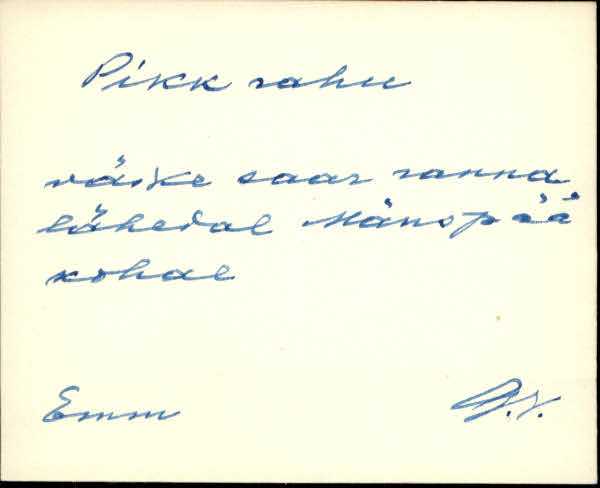 Pikk rahu
väike saar ranna
lähedal Mänspää
kohal
Emm